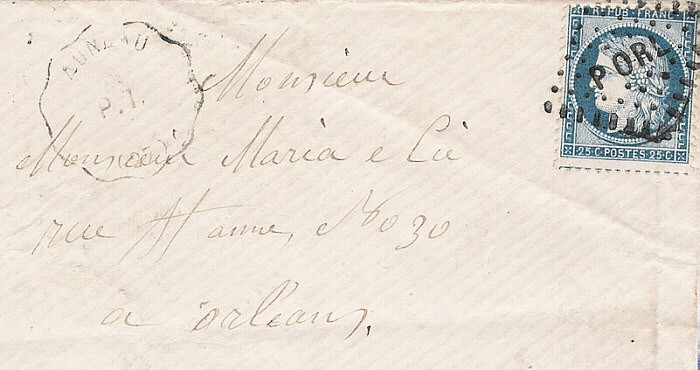 AUNEAU
P.1.
REPUB FRANC
P ORL
25 C POSTES 25 C
Monsieur
Monsieur Maria e Cie
rue No 30
a orléans,